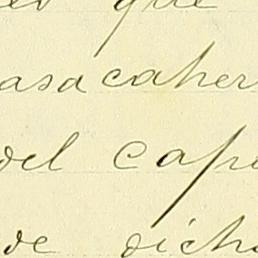 que
asacaher
del cape
de dicho